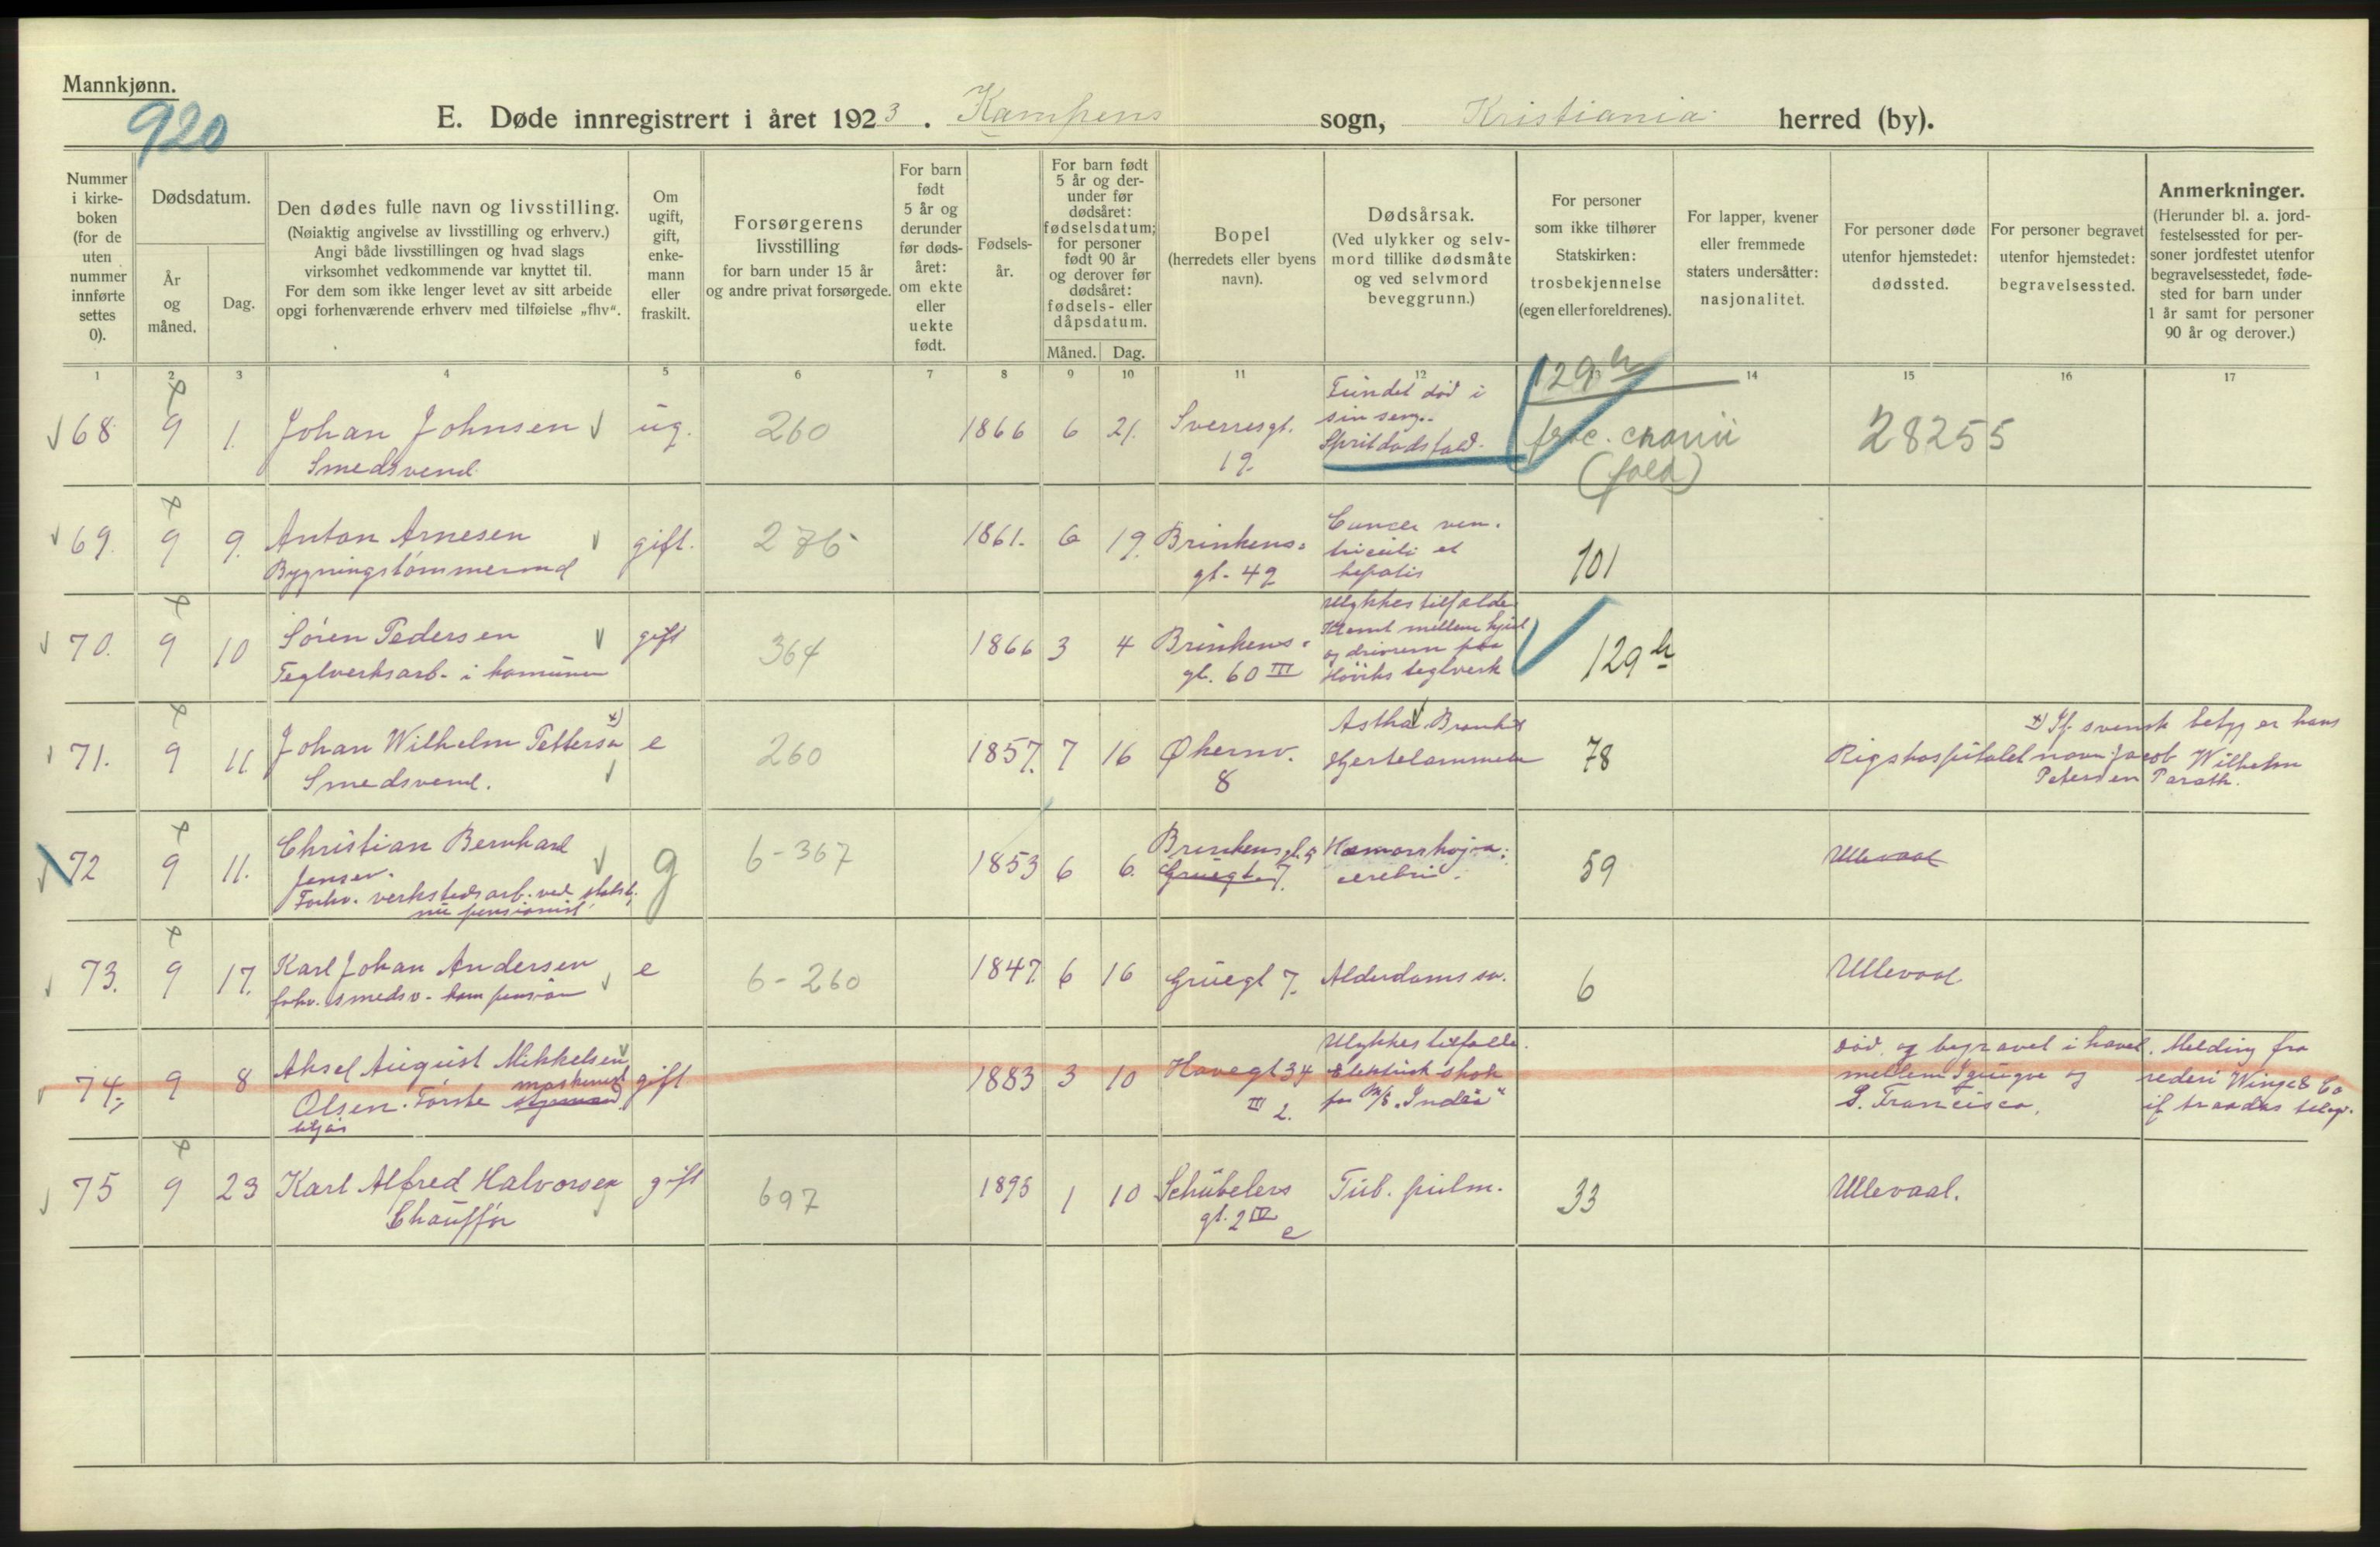 Mannkjønn.
920
E. Døde innregistrert i året 1923. Kampens sogn, Kristiania herred (by).
Nummer i kirkeboken (for de uten nummer innførte settes 0).
Dødsdatum.
År og måned.
Dag.
Den dødes fulle navn og livsstilling.
(Nøiaktig angivelse av livsstilling og erhverv.)
Angi både livsstillingen og hvad slags
virksomhet vedkommende var knyttet til.
For dem som ikke lenger levet av sitt arbeide
opgi forhenværende erhverv med tilføielse „fhv“.
Om ugift, gift, enkemann eller fraskilt.
Forsørgerens livsstilling
for barn under 15 år
og andre privat forsørgede.
For barn født 5 år og derunder før dødsåret: om ekte eller uekte født.
Fødselsår.
For barn født 5 år og derunder før dødsåret: fødselsdatum; for personer født 90 år og derover før dødsåret: fødsels- eller dåpsdatum.
Måned. Dag.
Bopel
(herredets eller byens navn).
Dødsårsak.
(Ved ulykker og selvmord tillike dødsmåte og ved selvmord beveggrunn.)
For personer som ikke tilhører Statskirken: trosbekjennelse (egen eller foreldrenes).
For lapper, kvener eller fremmede staters undersåtter: nasjonalitet.
For personer døde utenfor hjemstedet: dødssted.
For personer begravet utenfor hjemstedet: begravelsessted.
Anmerkninger.
(Herunder bl. a. jordfestelsessted for personer jordfestet utenfor begravelsesstedet, fødested for barn under 1 år samt for personer 90 år og derover.)
1 2 3 4 5 6 7 8 9 10 11 12 13 14 15 16 17
68 9 1. Johan Johnsen ug. 260 1866 6 21. Sverresgt. 19.
Smedsvend.
Fundet død i
sin seng.
Spritdødsfald.
129 h
frac. cranii
(fald)
28255
69. 9 9. Anton Arnesen gift. 276 1861. 6 19. Brinkens
gt. 49
Bygningstømmermand
Cancer ven-
triculi et
hepatis
101
70. 9 10 Søren Pedersen gift 364 1866 3 4 Brinkens
gt. 60 III
Teglverksarb. i komunen
Ulykkestilfælde
Klemt mellem hjul
og drivrem paa
Høviks teglverk
129 h
71. 9 11. Johan Wilhelm Petterson x) e 260 1857. 7 16 Økernv.
8
Smedsvend.
Hjertelammelse
78
Rigshospitalet
x) If. svensk betyg er hans
navn Jacob Wilhelm
Petersen Parath.
72 9 11. Christian Bernhard
Jensen.
Forhv. verkstedsarb. ved statsb.
nu pensionist
g 6-367 1853 6 6. Brinkensgt. 9
Gruegt 7.
Hæmorrhagia
cerebri.
59
Ullevaal
73. 9 17. Karl Johan Andersen e 6-260 1847. 6 16 Gruegt 7. Alderdomssv. 6 Ullevaal
forhv. smedsv. kom pension
74. 9 8 Aksel August Mikkelsen
Olsen. Første maskinist
styrmand
gift 1883 3 10 Havegt 34
III 2.
Ulykkestilfælde.
Elektrisk shok
paa M/S „India“
død og begravet i havet
mellem Iquique og
S. Francisco.
Melding fra
rederi Winge & Co
if. traadløs telegr.
75 9 23 Karl Alfred Halvorsen gift 697 1895 1 10 Schübelers
gt. 2 IV
e
Chauffør
Tub. pulm.
33
Ullevaal.